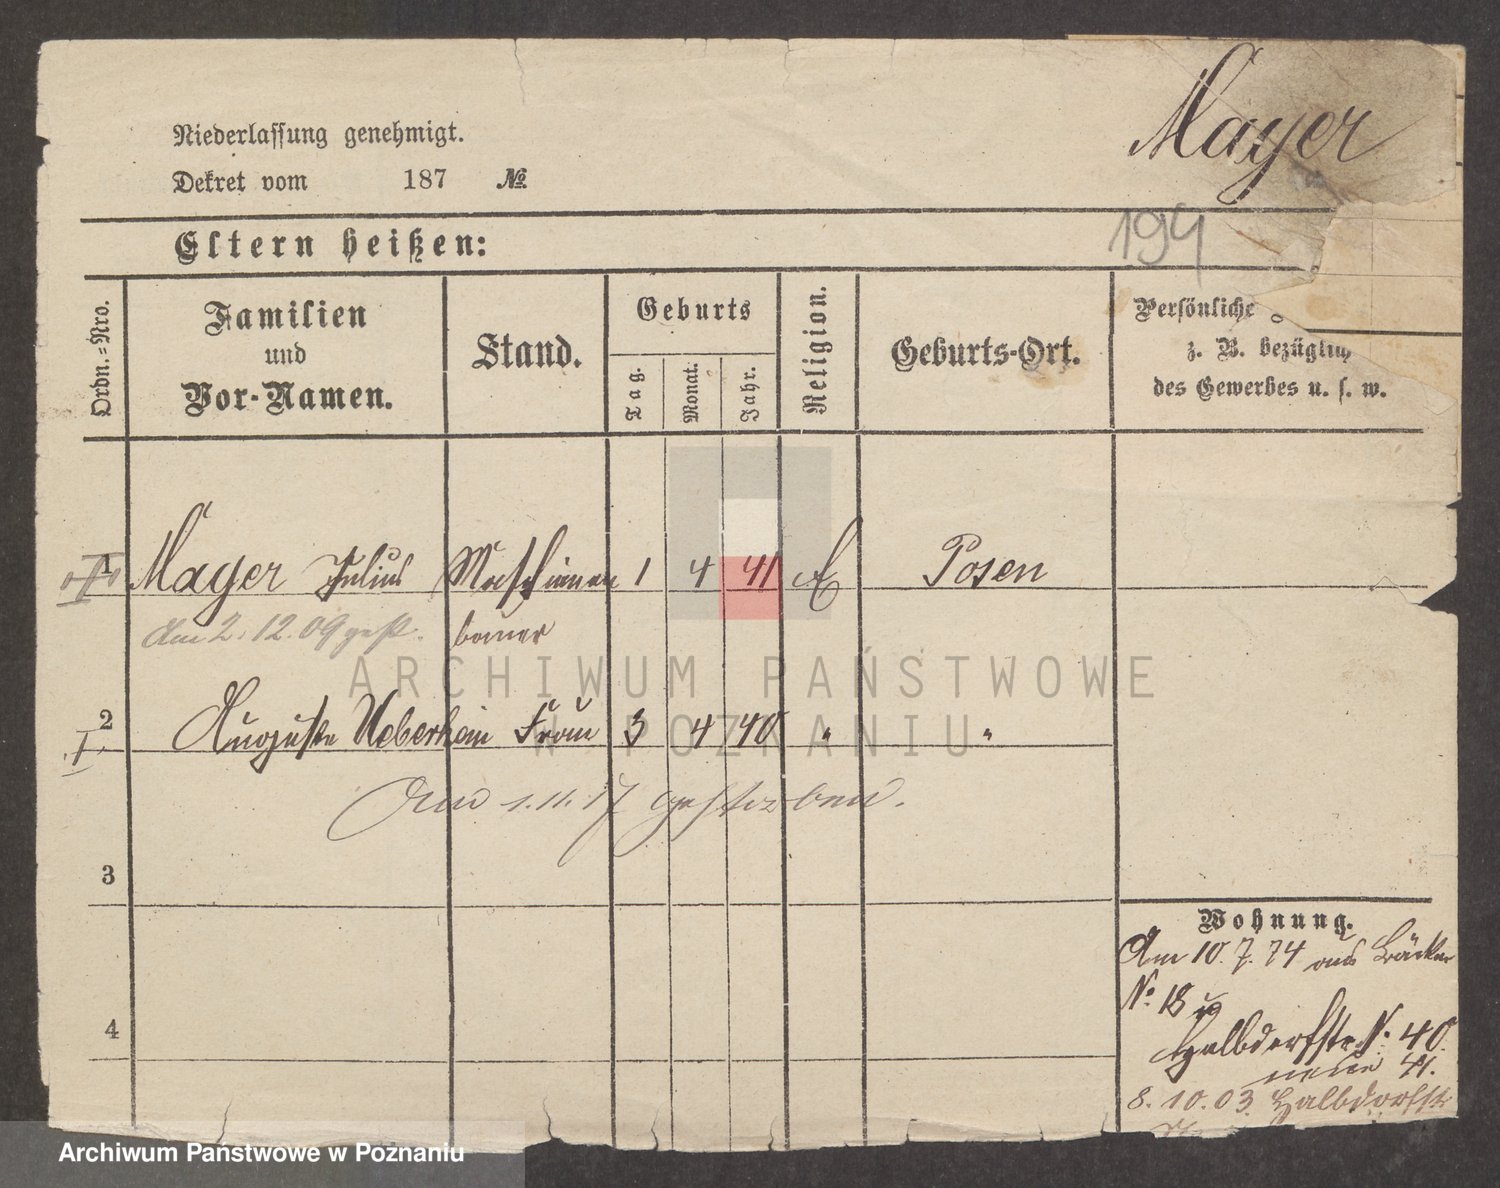 Mayer
Niederlassung genehmigt.
Dekret vom 187 №
194
Eltern heißen:
Ordn.=Nro.
Familien
und
Vor-Namen.
Stand.
Geburts
Tag.
Monat.
Jahr.
Religion.
Geburts-Ort.
Persönliche
z. B. bezüglich
des Gewerbes u. s. w.
1 Mayer Julius Maschinen 1 4 41 Posen
Am 2. 12. 09 gest. bauer
ARCHIWUM PAŃSTWOWE
W POZNANIU
2 Auguste Ueberhein Frau 3 4 40 " "
I
Am 1. 11. 17 gestorben.
3
4
Wohnung.
Am 10. 7. 74 aus Bäcker
No 18 in
Halbdorfstr. N. 40.
neue 41.
8. 10. 03 Halbdorfstr
Archiwum Państwowe w Poznaniu